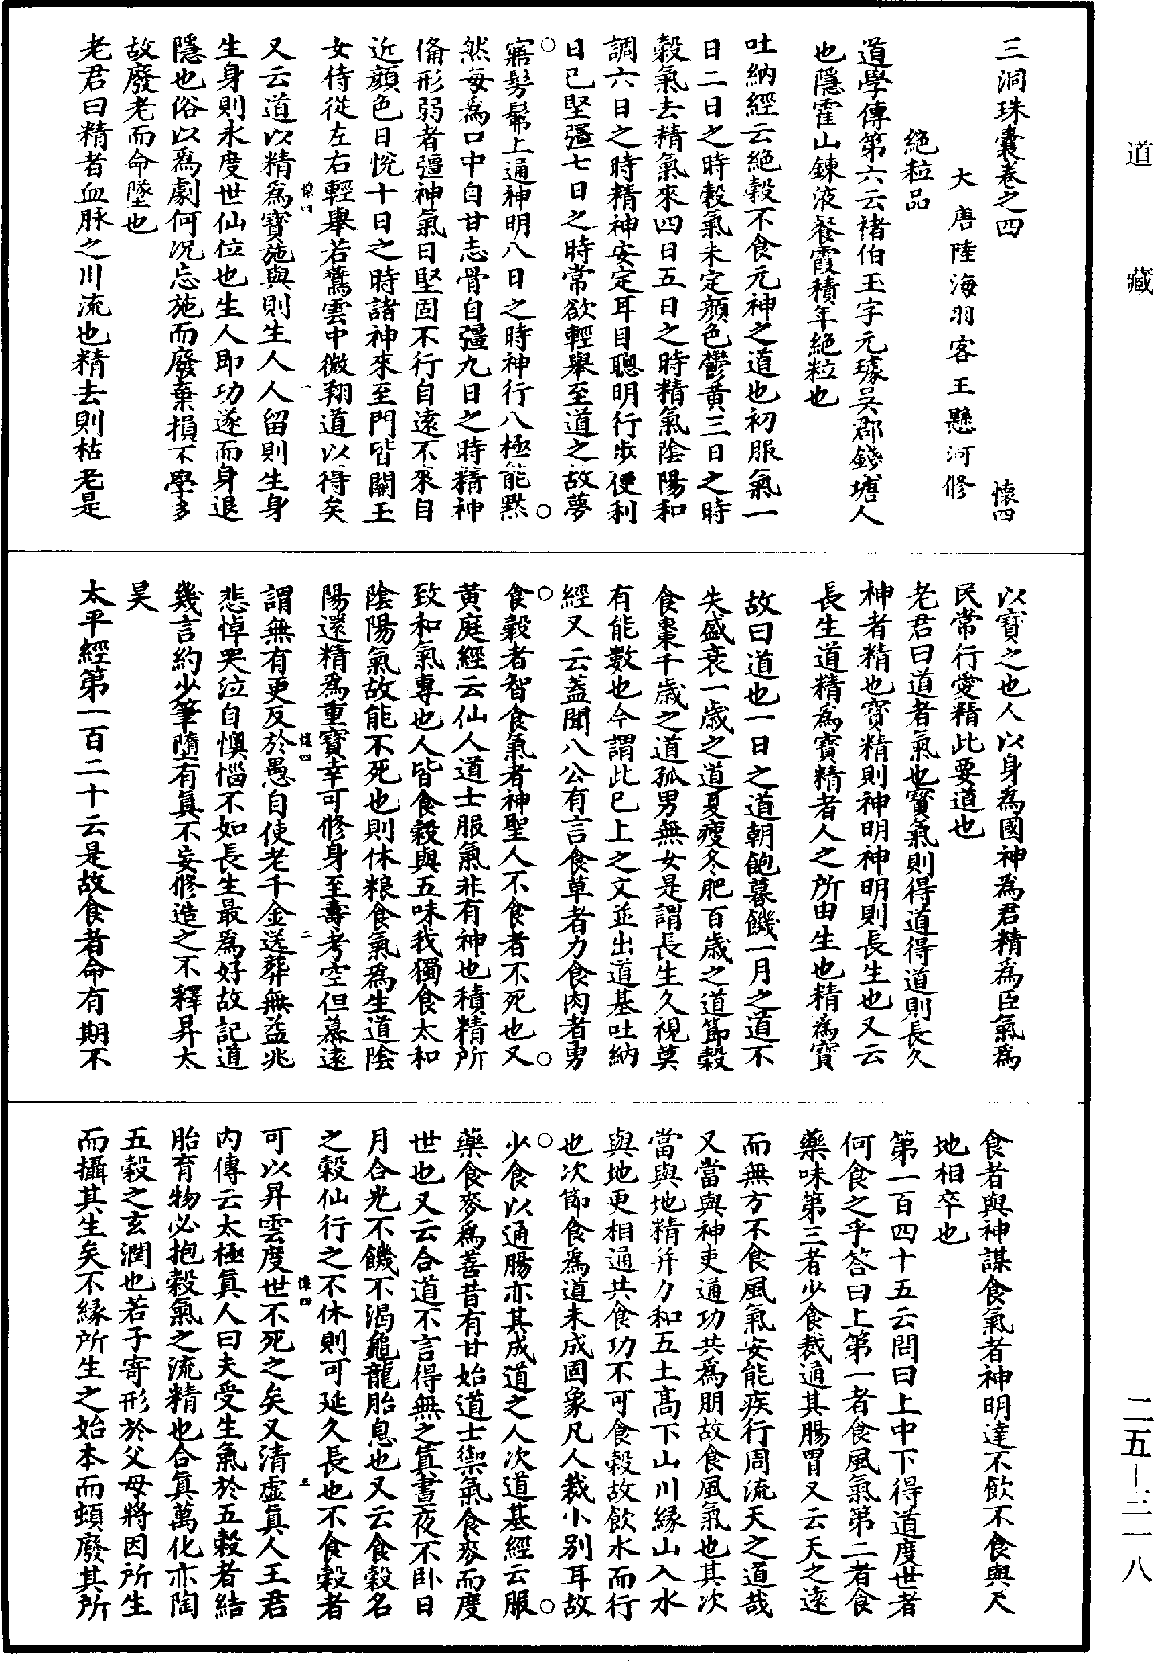 道藏
二五—三一八
三洞珠囊卷之四 懷四
大唐陸海羽客王懸河修
絕粒品
道學傳第六云褚伯玉字元璩吳郡錢塘人
也隱霍山鍊液餐霞積年絕粒也
吐納經云絕穀不食元神之道也初服氣一
日二日之時穀氣未定顏色鬱黃三日之時
穀氣去精氣來四日五日之時精氣陰陽和
調六日之時精神安定耳目聰明行步便利
日已堅彊七日之時常欲輕舉至道之故夢
寤髣髴上通神明八日之時神行八極能黙
然每為口中白甘志骨自彊九日之時精神
俻形弱者彊神氣日堅固不行自遠不來自
近顏色日悅十日之時諸神來至門皆闢玉
女侍從左右輕舉若驚雲中微翔道以得矣
又云道以精為寶施與則生人人留則生身
生身則永度世仙位也生人即功遂而身退
隱也俗以為劇何況忘施而廢棄損不學多
故廢老而命墜也
老君曰精者血脉之川流也精去則枯老是
以寶之也人以身為國神為君精為臣氣為
民常行愛精此要道也
老君曰道者氣也寶氣則得道得道則長久
神者精也寶精則神明神明則長生也又云
長生道精為寶精者人之所由生也精為寶
故曰道也一日之道朝飽暮饑一月之道不
失盛衰一歲之道夏瘦冬肥百歲之道節穀
食棗千歲之道孤男無女是謂長生久視莫
有能數也今謂此已上之文並出道基吐納
經又云蓋聞八公有言食草者力食肉者勇
食穀者智食氣者神聖人不食者不死也又
黃庭經云仙人道士服氣非有神也積精所
致和氣專也人皆食穀與五味我獨食太和
陰陽氣故能不死也則休粮食氣為生道陰
陽還精為重寶幸可修身至壽考空但慕遠
謂無有更反於愚自使老千金送葬無益兆
悲悼哭泣自懊惱不如長生最為好故記道
幾言約少筆墮有真不妄修造之不釋昇太
昊
太平經第一百二十云是故食者命有期不
食者與神謀食氣者神明達不飲不食與天
地相卒也
第一百四十五云問曰上中下得道度世者
何食之乎答曰上第一者食風氣第二者食
藥味第三者少食裁通其腸胃又云天之遠
而無方不食風氣安能疾行周流天之道哉
又當與神吏通功共為朋故食風氣也其次
當與地精并力和五土高下山川緣山入水
與地更相通共食功不可食穀故飲水而行
也次節食為道未成固象凡人裁小別耳故
少食以通腸亦其成道之人次道基經云服
藥食麥為善昔有甘始道士禦氣食麥而度
世也又云合道不言得無之真晝夜不卧日
月合光不饑不渴龜龍胎息也又云食穀名
之穀仙行之不休則可延久長也不食穀者
可以昇雲度世不死之矣又清虛真人王君
內傳云太極真人曰夫受生氣於五穀者結
胎育物必抱穀氣之流精也合真萬化亦陶
五穀之玄潤也若子寄形於父母將因所生
而攝其生矣不緣所生之始本而頓廢其所